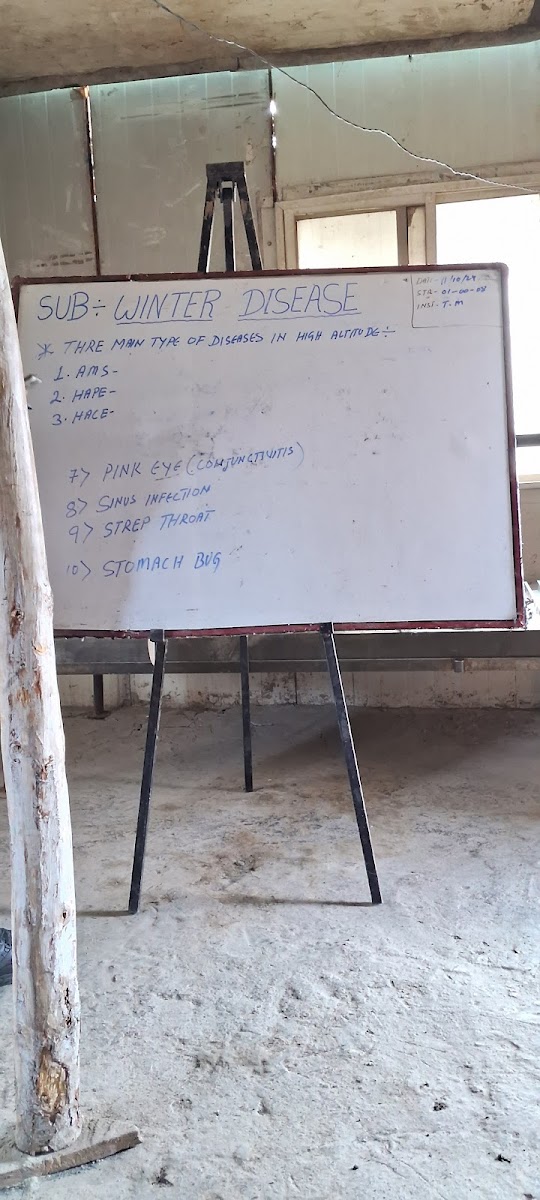 SUB÷ WINTER DISEASE
DATE- 11/10/24
STR- 01-00-08
INST- T.M
* THRE MAIN TYPE OF DISEASES IN HIGH ALTITUDE÷
1. AMS-
2. HAPE-
3. HACE-
7> PINK EYE (CONJUNCTIVITIS)
8> SINUS INFECTION
9> STREP THROAT
10> STOMACH BUG